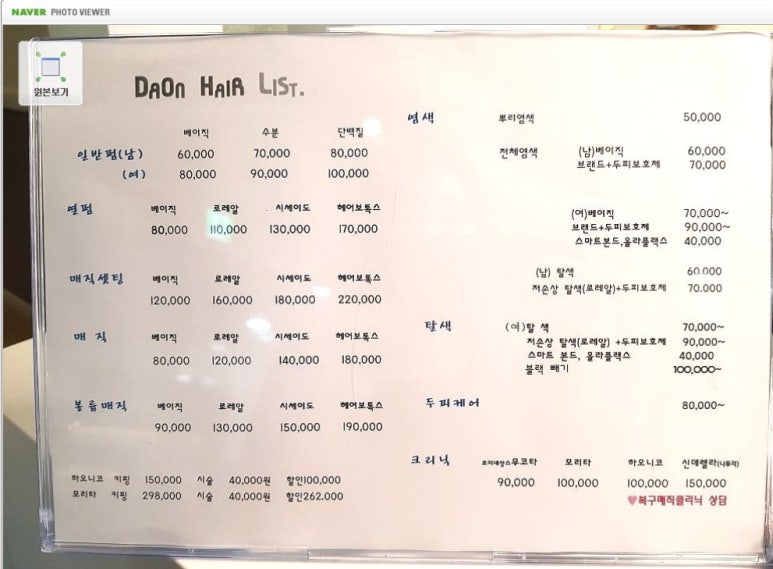 NAVER PHOTO VIEWER
원본보기
DAON HAIR LIST.
베이직 수분 단백질
일반펌(남) 60,000 70,000 80,000
(여) 80,000 90,000 100,000
열펌 베이직 로레알 시세이도 헤어보톡스
80,000 110,000 130,000 170,000
매직셋팅 베이직 로레알 시세이도 헤어보톡스
120,000 160,000 180,000 220,000
매직 베이직 로레알 시세이도 헤어보톡스
80,000 120,000 140,000 180,000
볼륨매직 베이직 로레알 시세이도 헤어보톡스
90,000 130,000 150,000 190,000
하오니코 키핑 150,000 시술 40,000원 할인100,000
모리타 키핑 298,000 시술 40,000원 할인262.000
염색 뿌리염색 50,000
전체염색 (남)베이직 60,000
브랜드+두피보호제 70,000
(여)베이직 70,000~
브랜드+두피보호제 90,000~
스마트본드,올라플랙스 40,000
(남) 탈색 60.000
저손상 탈색(로레알)+두피보호제 70.000
탈색 (여)탈 색 70,000~
저손상 탈색(로레알) +두피보호제 90,000~
스마트 본드, 올라플랙스 40,000
블랙 빼기 100,000~
두피케어 80,000~
크리닉 무코타 모리타 하오니코 신데렐라
90,000 100,000 100,000 150,000
♥복구매직클리닉 상담